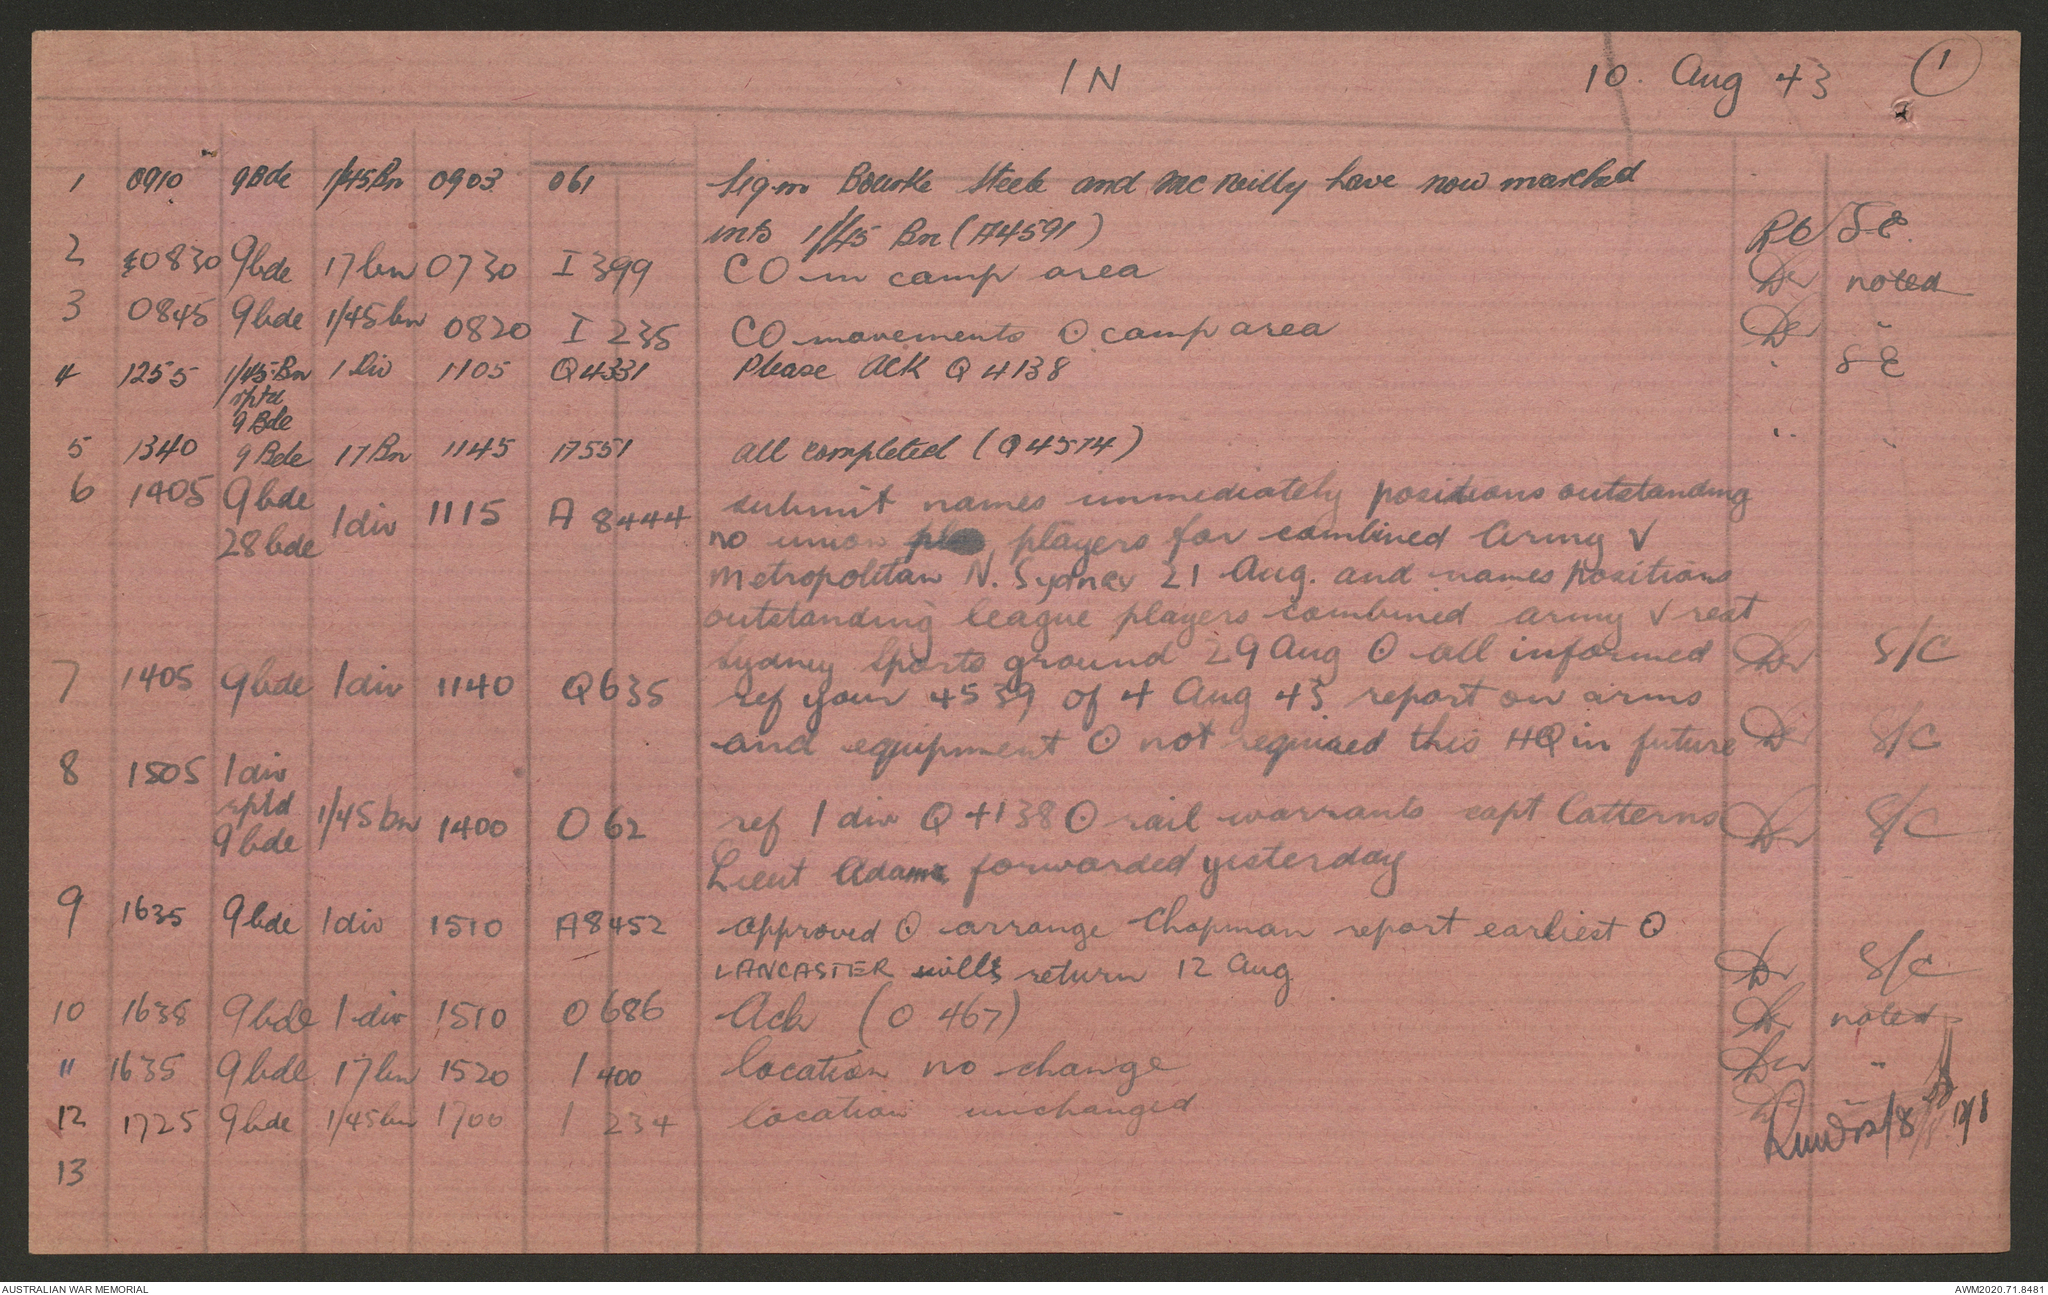 IN 10. Aug 43 1
1 0910 9Bde 1/45Bn 0903 061 Sigmn Bourke Steele and McReilly have now marched
into 1/45 Bn (A4591) SC.
2 0830 9bde 17bn 0730 I 399 CO in camp area noted
3 0845 9bde 1/45bn 0820 I 235 CO movements ⊙ camp area "
4 1255 1/45 Bn 1 Div 1105 Q4331 Please ACK Q 4138 SC
rptd
9 Bde
5 1340 9 Bde 17Bn 1145 A7551 All completed (Q4574) "
6 1405 9bde 1div 1115 A 8444 submit names immediately positions outstanding
28bde no union players for combined Army V
Metropolitan N. Sydney 21 Aug. and names positions
outstanding league players combined army V rest
Sydney Sports ground 29 Aug ⊙ all informed S/C
7 1405 9bde 1div 1140 Q635 ref your 4539 of 4 Aug 43 report on arms
and equipment ⊙ not required this HQ in future S/C
8 1505 1div
rptd 1/45bn 1400 O 62 ref 1 div Q 4138 ⊙ rail warrants capt Catterns S/C
9bde Lieut Adams forwarded yesterday
9 1635 9bde 1div 1510 A8452 approved ⊙ arrange Chapman report earliest ⊙
LANCASTER wills return 12 Aug S/C
10 1638 9bde 1 div 1510 O686 Ack (O 467) noted
11 1635 9bde 17bn 1520 I 400 location no change "
12 1725 9bde 1/45bn 1700 I 234 location unchanged "
13
AUSTRALIAN WAR MEMORIAL AWM2020.71.8481